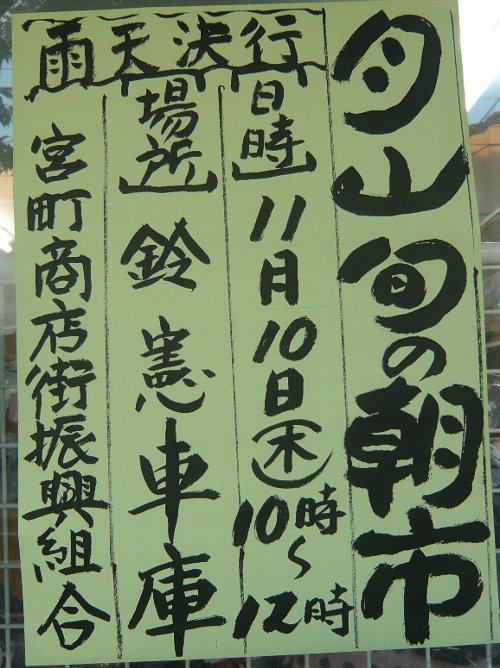 月山旬の朝市
雨天決行
[日時]
11月10日(木)
10時~12時
[場所]
鈴憲車庫
宮町商店街振興組合